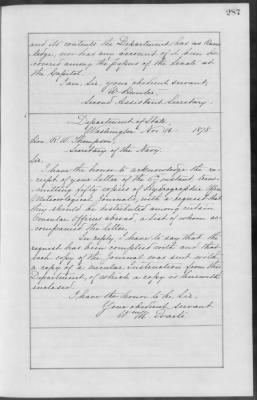 287
and its contents the Department has no know-
ledge, nor has any account of it been dis-
covered among the papers of the Senate at
the Capitol.
I am, Sir, your obedient servant,
W. Hunter,
Second Assistant Secretary.
Department of State
Washington Nov. 16 1878
Hon. R. W. Thompson,
Secretary of the Navy.
Sir,
I have the honor to acknowledge the re-
ceipt of your letter of the instant trans-
mitting fifty copies of Hydrographic Office
Meteorological Journals, with a request that
they should be distributed among certain
Consular Officers abroad, a list of whom ac-
companied the letter.
In reply, I have to say that the
request has been complied with and that
each copy of the Journal was sent with
a copy of a circular instruction from this
Department, of which a copy is herewith
inclosed.
I have the honor to be, Sir,
Your obedient servant
Wm. M. Evarts